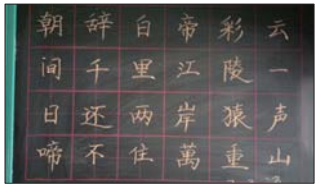 朝辞白帝彩云
间千里江陵一
日还两岸猿声
啼不住萬重山